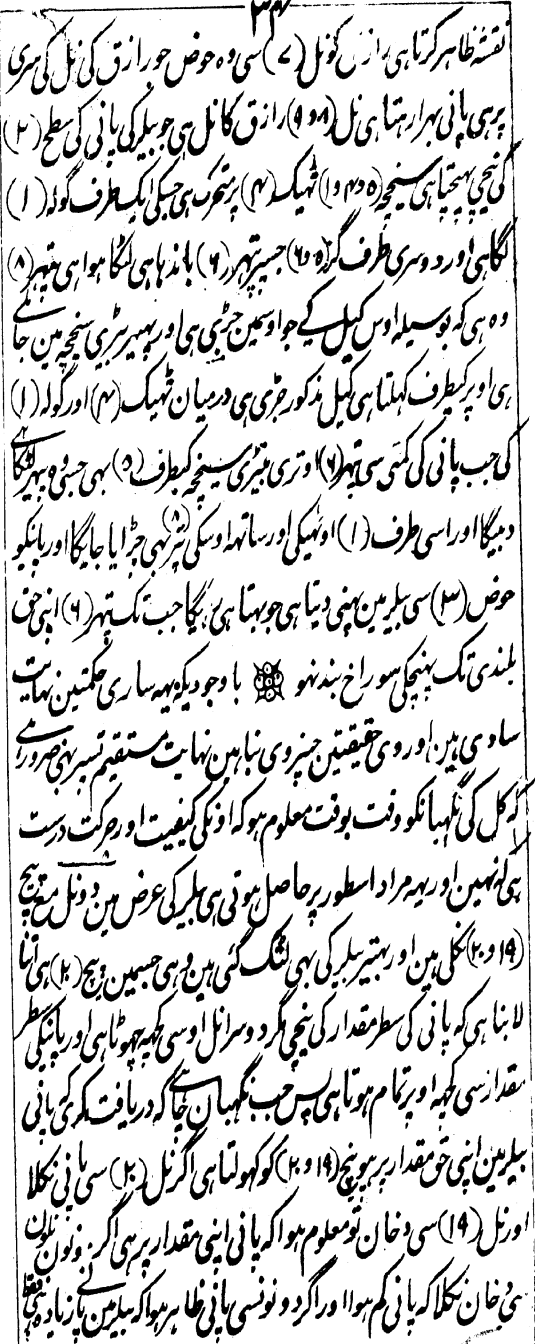 ۳۴
نقشہ ظاہر کرتا ہی رازق کو نل (۷) سی وہ حوض جو رازق کی نل کی سری
پر ہی پانی بہرا رہتا ہی نل (۸ و ۹) رازق کا نل ہی جو بیلر کی پانی کی سطح (۲)
کی نیچی پہنچتا ہی سیخچہ (۵ و ۴ و ۱) ٹھیک (۴) پر متحرک ہی جسکی ایک طرف گولہ (۱)
لگا ہی اور دوسری طرف گز (۵ و ۶) جسپر پتہر (۶) باندہا ہی لٹکا ہوا ہی پتہر (۸)
وہ ہی کہ بوسیلہ اوس کیل کے جو اوسمین جڑی ہی اور پہیر بیڑی سیخچہ مین جاتے
ہی اوپر کیطرف کہلتا ہی کیل مذکور جڑی ہی درمیان ٹھیک (۴) اور گولہ (۱)
کی جب پانی کی کمی سی پتہر (۶) اوتری تیڑی سیخچہ کیطرف (۵) بہی جسی وہ پتہر لٹکا ہے
دبیگا اور اسی طرف (۱) اوٹہیگی اور ساتہہ اوسکی پتہر (۸) بہی چڑایا جایگا اور پانیکو
حوض (۳) سی بیلر مین بہنی دیتا ہی جو بہتا ہی رہیگا جب تک پتہر (۶) اپنی حق
بلندی تک پہنچکی سوراخ بند نہو باوجودیکہ یہہ ساری حکمتین نہایت
سادی ہین اور وی حقیقتین جنپر وی بنا ہین نہایت مستقیم تسپر بہی ضرور ہے
کہ کل کی نگہبانکو وقت بوقت معلوم ہو کہ اونکی کیفیت اور حرکت درست
ہی کہ نہین اور یہہ مراد اسطور پر حاصل ہوتی ہی بیلر کی عرض مین دو نل مع پیچ
(۱۹ و ۲۰) نکلی ہین اور بہیتر بیلر کی بہی لٹک گئی ہین وہی جسمین پیچ (۲۰) ہی اتنا
لابنا ہی کہ پانی کی سطر مقدار کی نیچی مگر دوسرا نل اوسی کچہہ چہوٹا ہی اور پانیکی سطر
مقدار سی کچہہ اوپر تمام ہوتا ہی پس جب نگہبان چاہے کہ دریافت کری کہ پانی
بیلر مین اپنی حق مقدار پر ہو پیچ (۱۹ و ۲۰) کو کہولتا ہی اگر نل (۲۰) سی پانی نکلا
اور نل (۱۹) سی دخان تو معلوم ہوا کہ پانی اپنی مقدار پر ہی اگر دونون نلون
سی دخان نکلا کہ پانی کم ہوا اور اگر دونونسی پانی ظاہر ہوا کہ بیلر مین پانی زیادہ ہی فقط